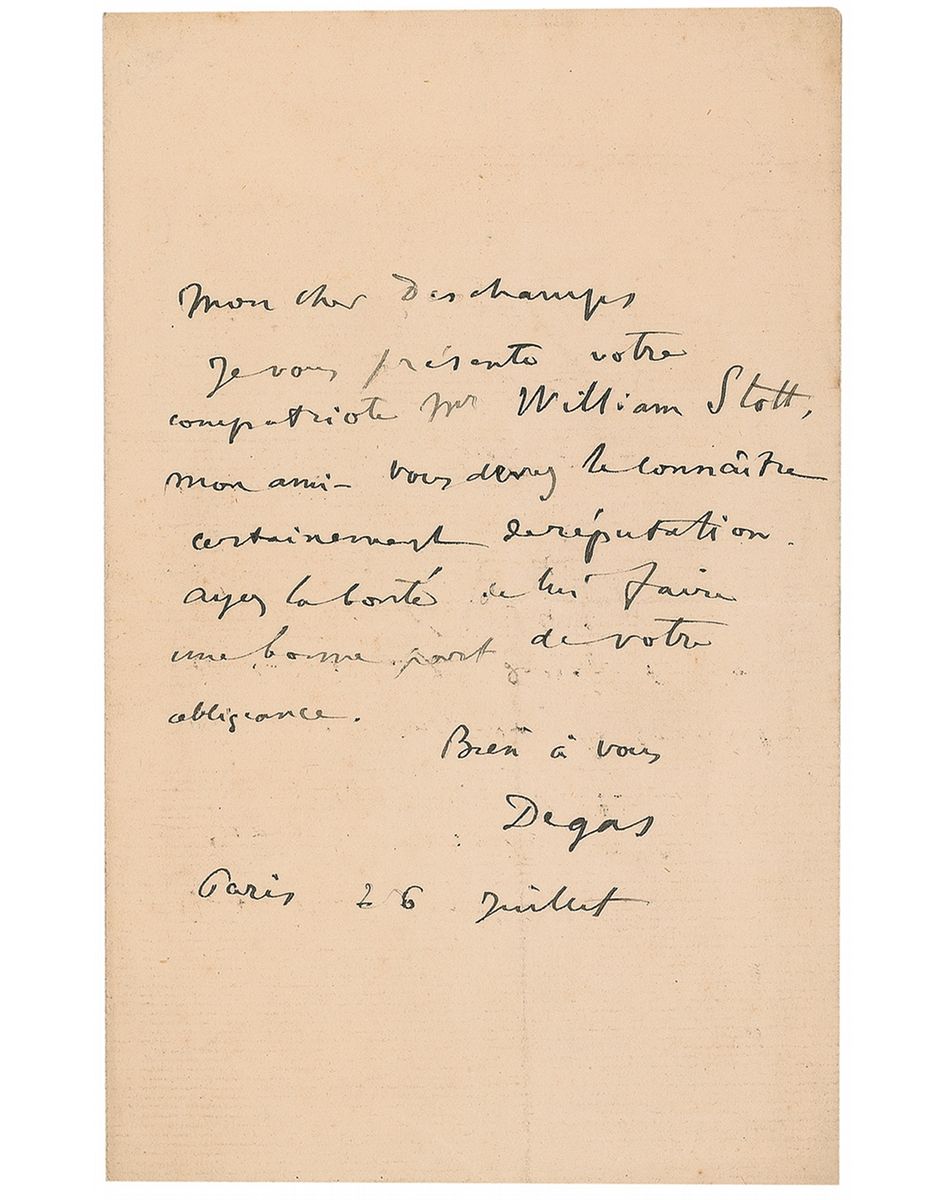 Mon cher Deschamps
Je vous présente votre
compatriote Mr William Stott,
mon ami – vous devez le connaître
certainement de réputation.
ayez la bonté de lui faire
une bonne part de votre
obligeance.
Bien à vous
Degas
Paris 26 Juillet